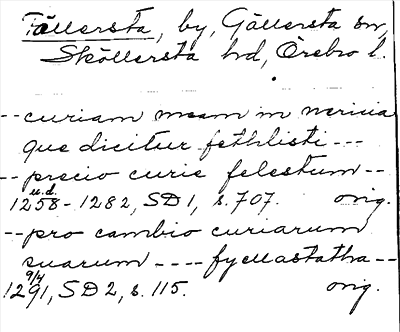 Fällersta, by, Gällersta sn,
Sköllersta hd, Örebro l.
-- curiam meam in nericia
que dicitur fethlisti ---
-- precio curie felestum --
u.d.
1258 - 1282, SD 1, s. 707. orig.
-- pro cambio curiarum
suarum ---- fyællastatha --
9/4
1291, SD 2, s. 115. orig.